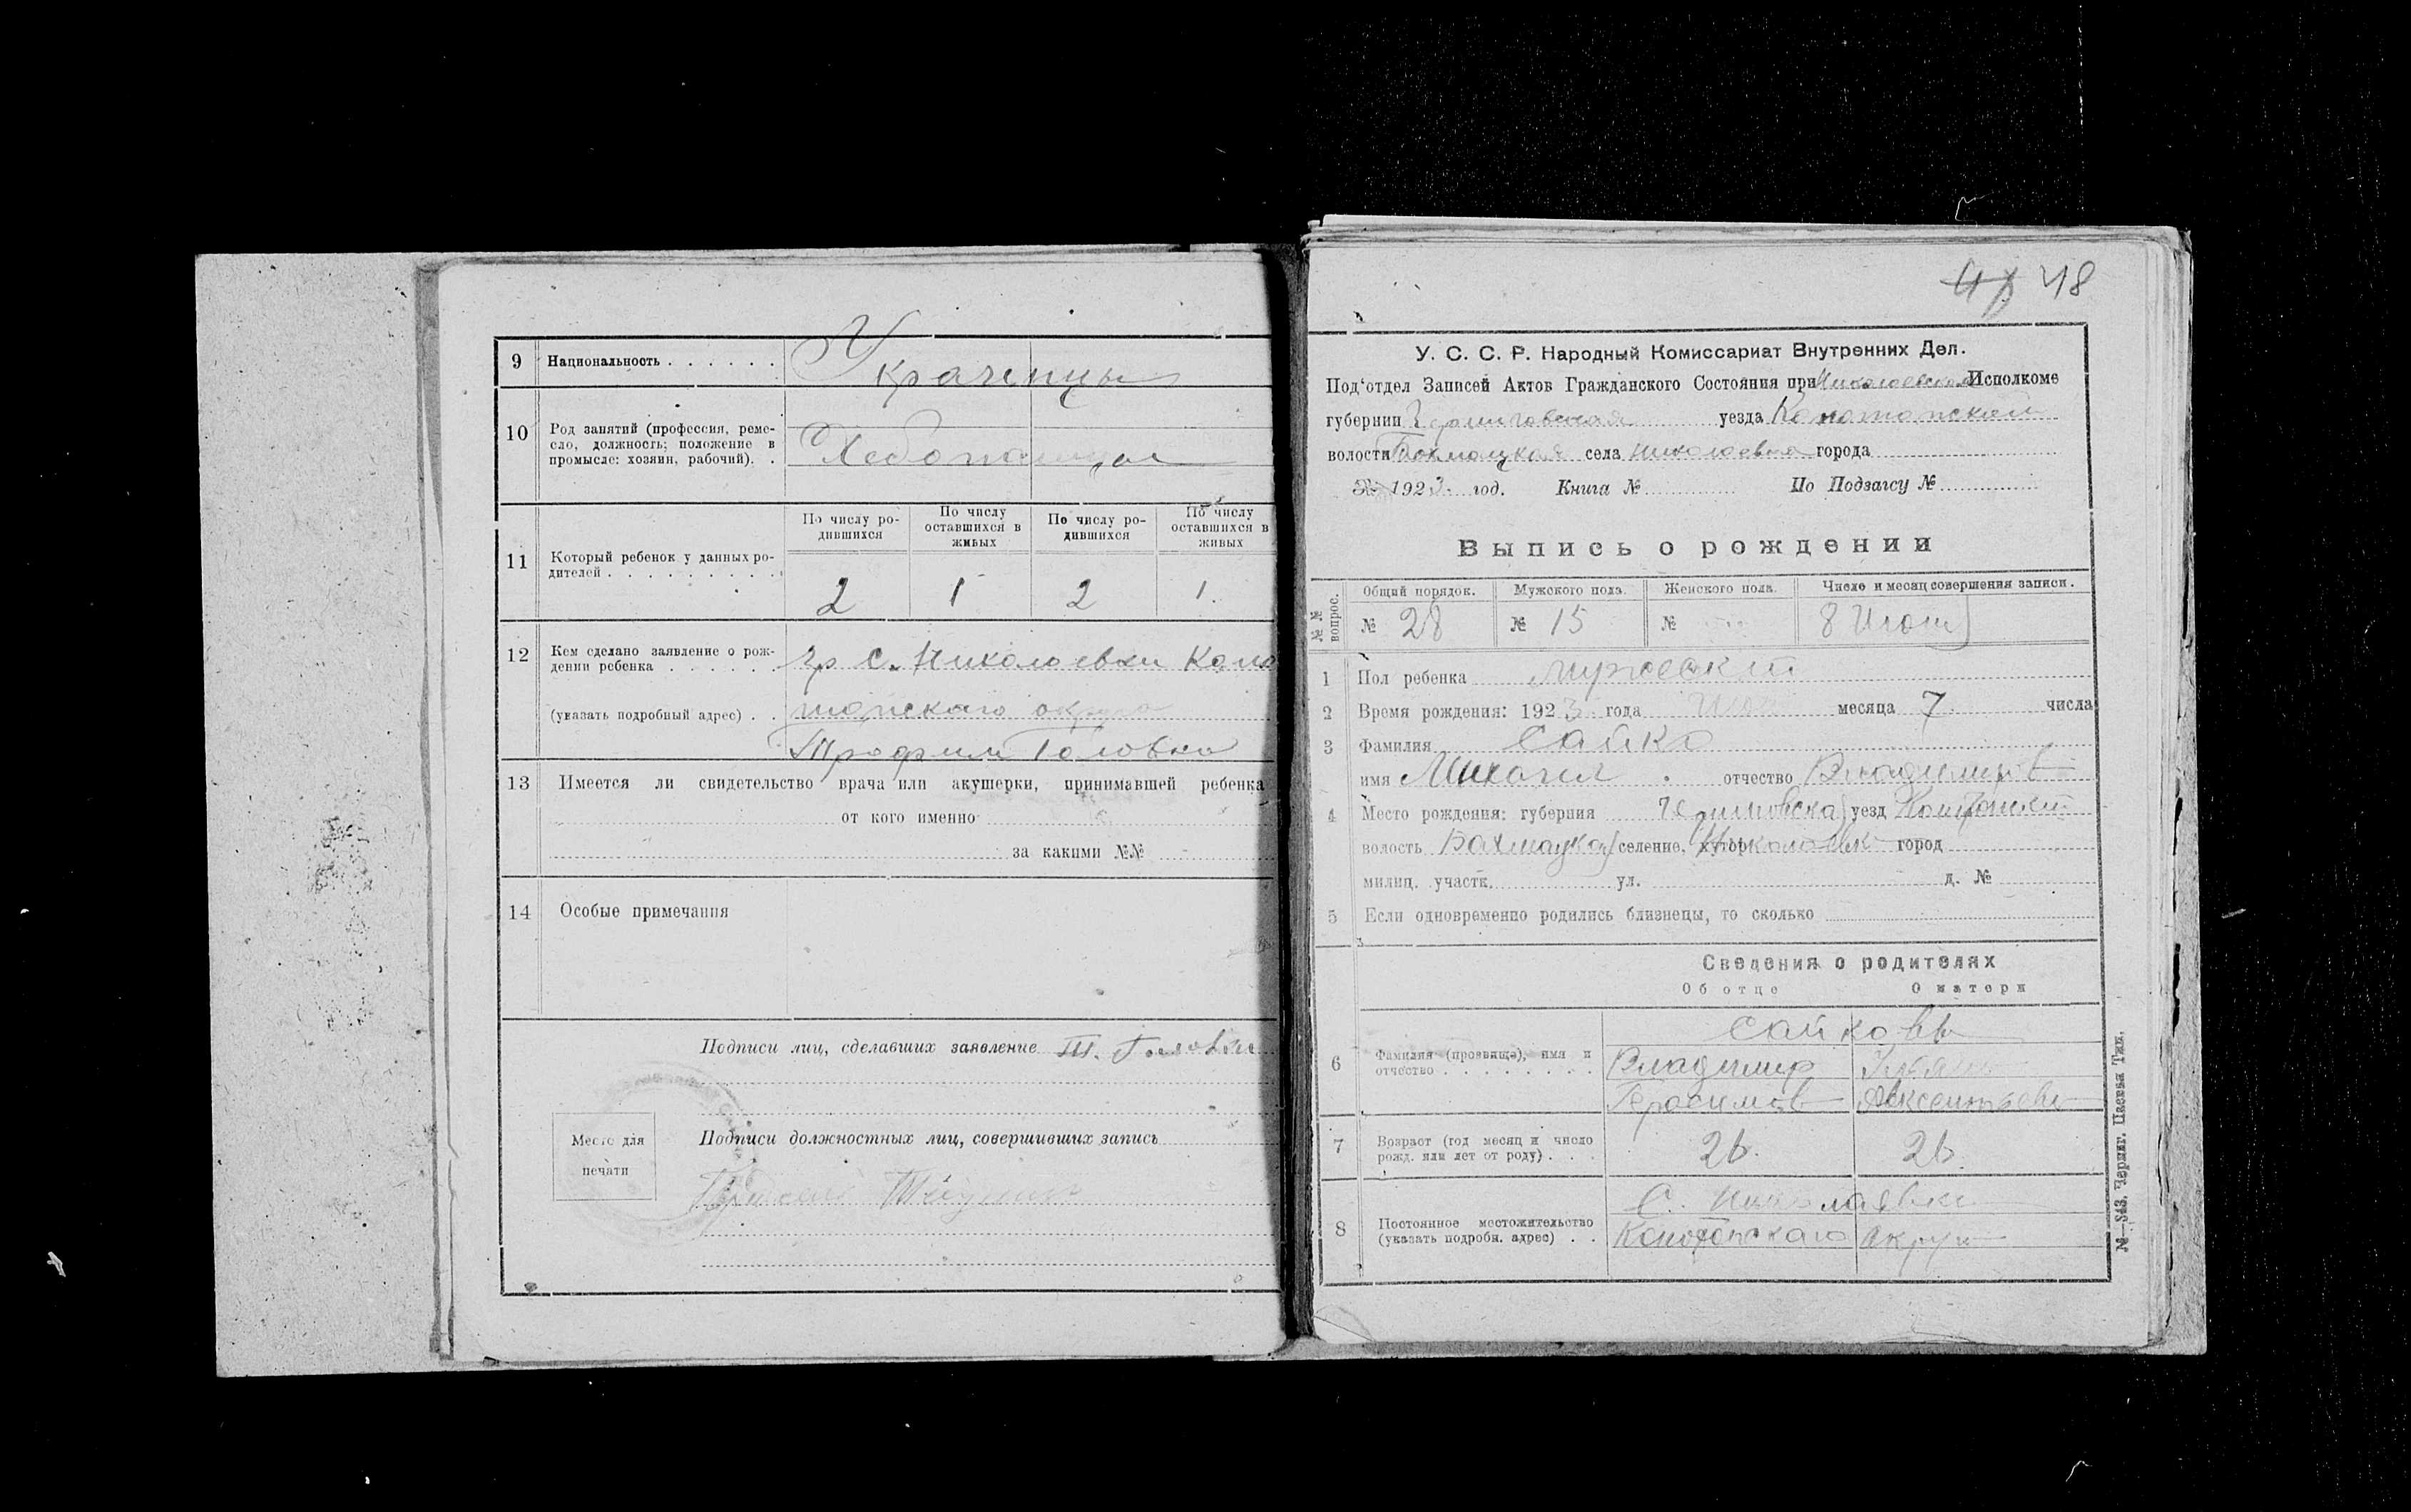 9 Национальность . . . . . . Украенцы
10 Род занятий (профессия, реме-
сло, должность; положение в
промысле: хозяин, рабочий). . Хебопашцы
11 Который ребенок у данных ро-
дителей . . . . . . . . .
По числу ро-
дившихся
По числу
оставшихся в
живых
По числу ро-
дившихся
По числу
оставшихся в
живых
2 1 2 1.
12 Кем сделано заявление о рож-
дении ребенка . . . . . . гр с. Николоевки Коно
(указать подробный адрес) . . топского округа
Трофим Головко
13 Имеется ли свидетельство врача или акушерки, принимавшей ребенка
от кого именно
за какими №№
14 Особые примечания
Подписи лиц, сделавших заявление Т. Головко
Место для
печати
Подписи должностных лиц, совершивших запись
47 48
У. С. С. Р. Народный Комиссариат Внутренних Дел.
Под'отдел Записей Актов Гражданского Состояния при Исполкоме
губернии Черниговская уезда Конотопский
волости Бахмацкая села Николоевка города
1923 год. Книга № По Подзагсу №
Выпись о рождении
№№ вопрос.
Общий порядок. Мужского пола. Женского пола. Число и месяц совершения записи.
№ 28 № 15 № 8
1 Пол ребенка мужеский
2 Время рождения: 1923 года месяца 7 числа
3 Фамилия Сайко
имя Михаил отчество Владимиров
4 Место рождения: губерния Черниговская уезд Конотопский
волость Бахмацкая селение, хутор Николаевк город
милиц. участк. ул. д. №
5 Если одновременно родились близнецы, то сколько
Сведения о родителях
Об отце О матери
6 Фамилия (прозвище), имя и
отчество . . . . . . . .
Сайковы
Владимир
Герасимов Авксентьевн
7 Возраст (год месяц и число
рожд. или лет от роду) . . . 26. 26.
8 Постоянное местожительство
(указать подробн. адрес) . .
С. Николаевки
Конотопскаго округа
№—843. Черниг. Паевая Тип.